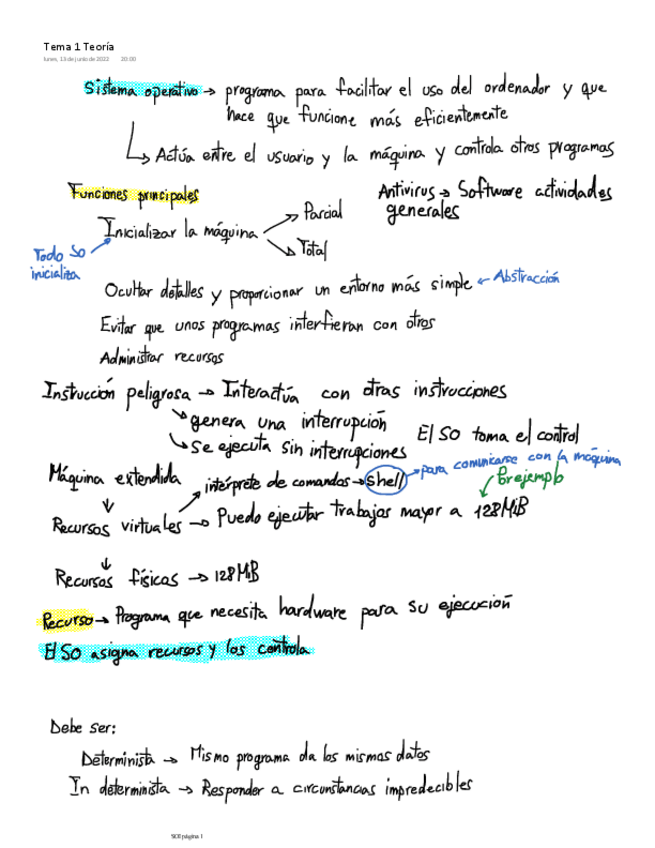 Tema 1 Teoría
lunes, 13 de junio de 2022 20:00
Sistema operativo → programa para facilitar el uso del ordenador y que
hace que funcione más eficientemente
↳ Actúa entre el usuario y la máquina y controla otros programas
Funciones principales
Antivirus → Software actividades
generales
Inicializar la máquina
Parcial
Total
Todo SO
inicializa
Ocultar detalles y proporcionar un entorno más simple ← Abstracción
Evitar que unos programas interfieran con otros
Administrar recursos
Instrucción peligrosa → Interactúa con otras instrucciones
↘ genera una interrupción
↘ Se ejecuta sin interrupciones
El SO toma el control
Máquina extendida
intérprete de comandos → shell → para comunicarse con la máquina
Por ejemplo
Recursos virtuales → Puedo ejecutar trabajos mayor a 128MiB
Recursos físicas → 128MiB
Recurso → Programa que necesita hardware para su ejecución
El SO asigna recursos y los controla
Debe ser:
Determinista → Mismo programa da los mismos datos
In determinista → Responder a circunstancias impredecibles
SOI página 1